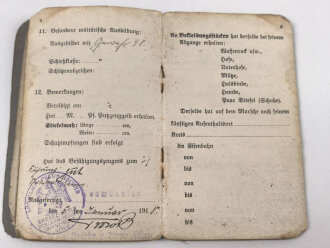 11. Besondere militärische Ausbildung:
Ausgebildet mit Gewehr 98.
Schießklasse:
Schützenabzeichen:
12. Bemerkungen:
Vereidigt am
Hat M. Pf. Putzzeuggeld erhalten.
Stiefelmaß: Länge cm,
Weite: cm.
Schutzimpfungen sind erfolgt
Hat das Befähigungszeugnis zum
Führung: gut
Ausgefertigt,
den Januar 191
An Bekleidungsstücken hat derselbe bei seinem
Abgange erhalten:
Waffenrock usw.,
Hose,
Unterhose,
Mütze,
Halsbinde,
Hemde,
Paar Stiefel (Schuhe).
Derselbe hat auf dem Marsche nach seinem
künftigen Aufenthaltsort
Kreis
die Eisenbahn
von
bis
von
bis
von
bis